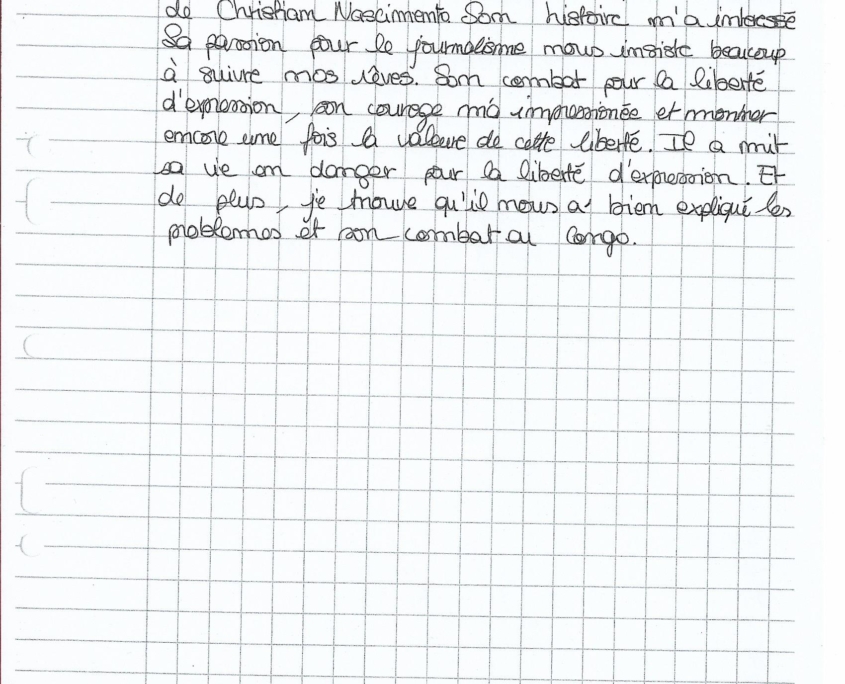 de Christian Nascimento Son histoire m'a intéressé
Sa passion pour le journalisme nous insiste beaucoup
à suivre nos rêves. Son combat pour la liberté
d'expression, son courage m'a impressionée et montrer
encore une fois la valeure de cette liberté. Il a mit
sa vie en danger pour la liberté d'expression. Et
de plus, je trouve qu'il nous a bien expliqué les
problemes et son combat au Congo.